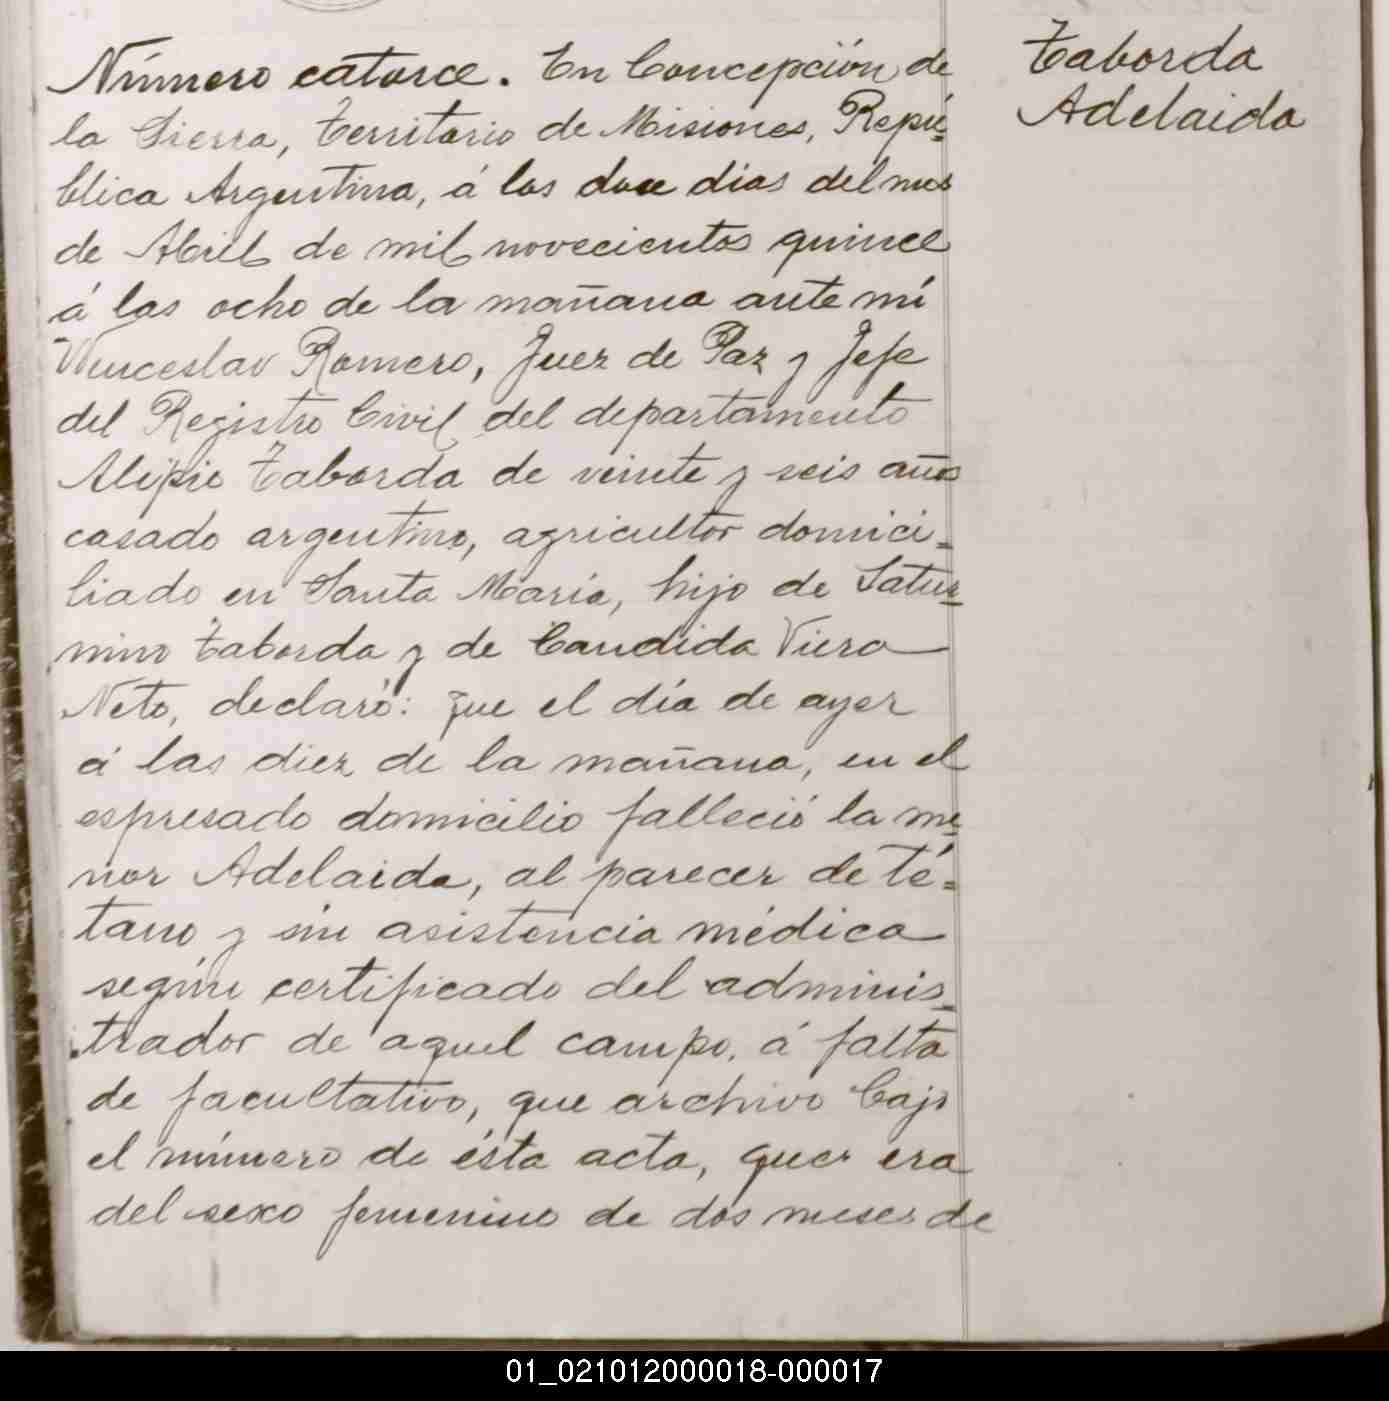 Número catorce. En Concepción de
la Sierra, Territorio de Misiones, Repú=
blica Argentina, á los doce dias del mes
de Abril de mil novecientos quince
á las ocho de la mañana ante mí
Wenceslao Romero, Juez de Paz y Jefe
del Registro Civil del departamento
Alipio Taborda de veinte y seis años
casado argentino, agricultor domici=
liado en Santa María, hijo de Satur=
nino Taborda y de Candida Viera
Neto, declaró: que el día de ayer
á las diez de la mañana, en el
espresado domicilio falleció la me=
nor Adelaida, al parecer de té=
tano y sin asistencia médica
según certificado del adminis=
trador de aquel campo, á falta
de facultativo, que archivo bajo
el número de ésta acta, que era
del sexo femenino de dos meses de
Taborda
Adelaida
01_021012000018-000017